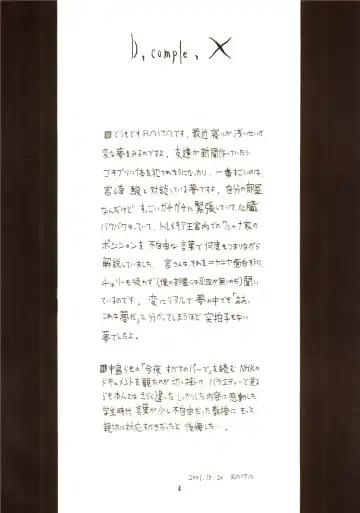 D, comple, X
■どうもですRAITAです。最近寝りが浅いせいか
変な夢をみるのですよ。友達が新聞作っていたり、
ゴキブリに体を犯されそうになったり、一番すごいのは、
宮崎 駿と対談している夢ですよ。自分の部屋
なんだけど、すごいガチガチに緊張していて心臓
バクバクゆっていて、トルメキア王宮内でのクシャナ家の
ポジションを不自由な言葉で何度もつまりながら
解説していました。宮さんは、それをニヤニヤ面白そうに
チェリーも吸わず(僕の部屋には灰皿が無いのだ)聞い
ているのです。変にリアルで夢の中でも「ああ、
これは夢だ」と分かってしまうほど突拍子もない
夢でしたよ。
■中島らもの「今夜、すべてのバーで」を読む NHKの
ドキュメントを観たのが切っ掛けで バラエティーで見る
らも本人とは まるく違った しっかりした内容に感動した
学生時代 言葉が少し不自由だった教授に もっと
親切に対応すべきだったと 後悔した…。
2001.12.20 RAITA
4